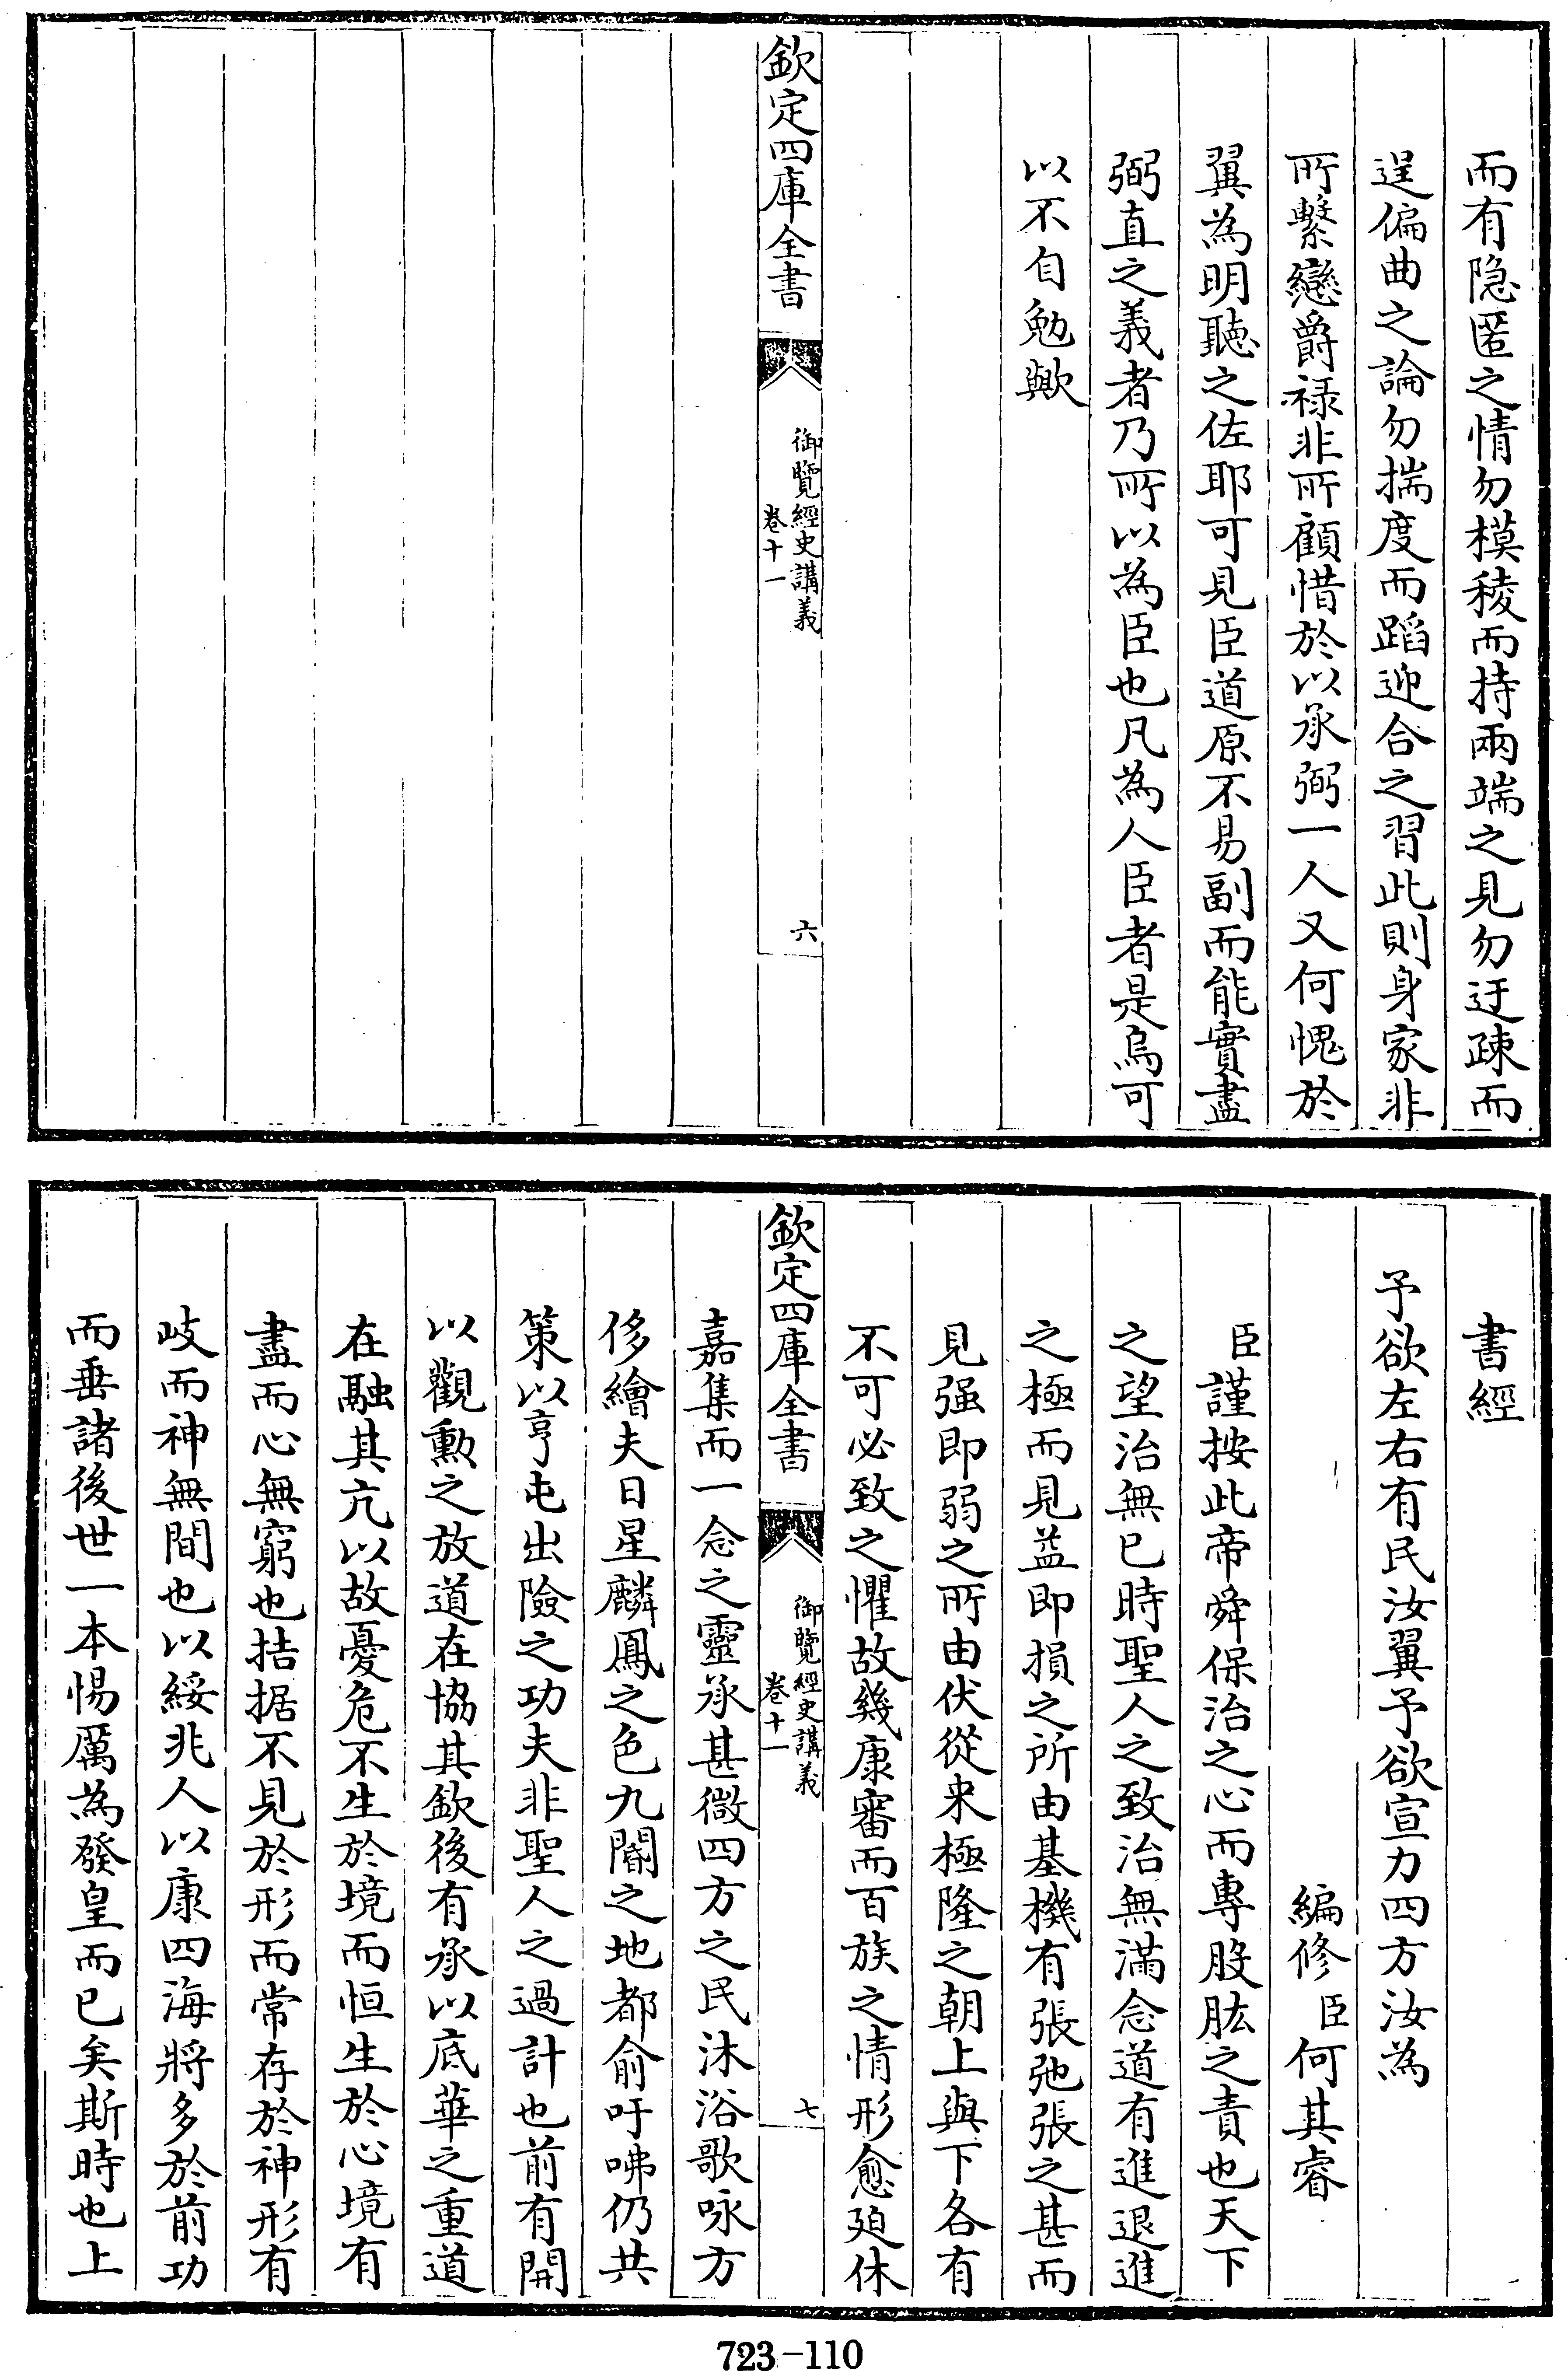 而有隐匿之情勿模稜而持兩端之見勿迂疎而
逞偏曲之論勿揣度而蹈迎合之習此則身家非
所繫戀爵禄非所顧惜於以承弼一人又何愧於
翼為明聽之佐耶可見臣道原不易副而能實盡
弼直之義者乃所以為臣也凡為人臣者是烏可
以不自勉歟
欽定四庫全書
御覽經史講義
卷十一
六
書經
予欲左右有民汝翼予欲宣力四方汝為
編修臣何其睿
臣謹按此帝舜保治之心而專股肱之責也天下
之望治無已時聖人之致治無滿念道有進退進
之極而見益即損之所由基機有張弛張之甚而
見强即弱之所由伏從来極隆之朝上與下各有
不可必致之懼故幾康審而百族之情形愈廹休
欽定四庫全書
御覽經史講義
卷十一
七
嘉集而一念之靈承甚微四方之民沐浴歌咏方
侈繪夫日星麟鳳之色九閽之地都俞吁咈仍共
策以亨屯出險之功夫非聖人之過計也前有開
以觀勳之放道在協其欽後有承以底華之重道
在融其亢以故憂危不生於境而恒生於心境有
盡而心無窮也拮据不見於形而常存於神形有
歧而神無間也以綏兆人以康四海將多於前功
而垂諸後世一本惕厲為發皇而已矣斯時也上
723-110